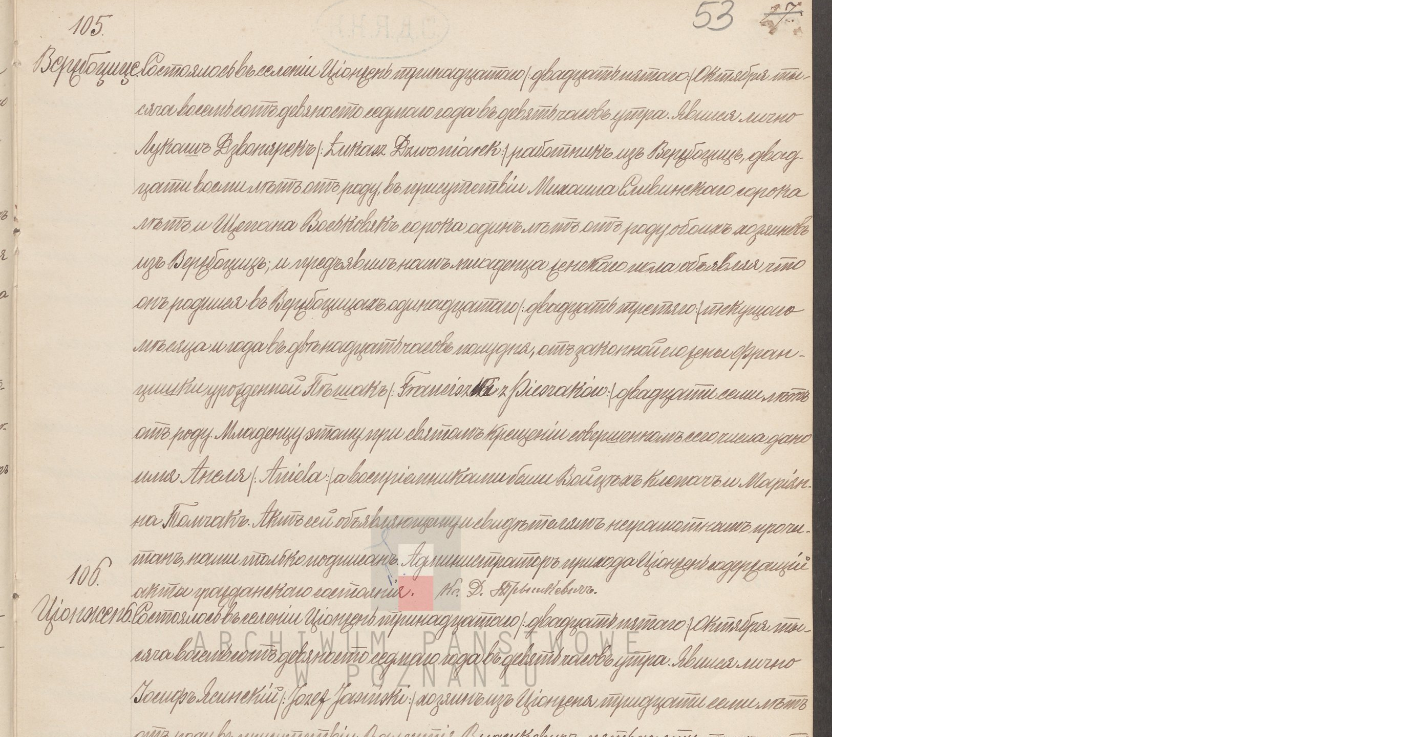 53 27.
105.
Вержбоцице Состоялось въ селеніи Ціонжень тринадцатаго /: двадцать пятаго :/ Октября ты-
сяча восемьсотъ девяносто седмаго года въ девять часовъ утра. Явился лично
Лукашъ Дзвонярекъ /: Łukasz Dzwoniarek :/ работникъ изъ Вержбоцицъ, двад-
цати восми лѣтъ отъ роду, въ присутствіи Михаила Сливинскаго сорока
лѣтъ и Щепана Воськовякъ сорока одинъ лѣтъ отъ роду обоихъ хозяиновъ
изъ Вержбоцицъ; и предъявилъ намъ младенца женскаго пола объявляя, что
онъ родился въ Вержбоцицахъ одинадцатаго /: двадцать третяго :/ текущаго
мѣсяца и года въ двѣнадцать часовъ полудня, отъ законной его жены Фран-
цишки урожденной Пѣшакъ /: Franciszki z Pieszaków :/ двадцати семи лѣтъ
отъ роду. Младенцу этому при святомъ крещеніи совершенномъ сего числа дано
имя Анеля /: Aniela :/ а воспріемниками были Войцѣхъ Клопачъ и Маріян-
на Толчакъ. Актъ сей объявляющему и свидѣтелямъ неграмотнымъ прочи-
танъ, нами только подписанъ. Администраторъ прихода Ціонжень содержащій
акты гражданскаго состоянія. Кс. Д.
106.
Ціонжень Состоялось въ селеніи Ціонжень тринадцатаго /: двадцать пятаго :/ Октября ты-
сяча восемьсотъ девяносто седмаго года въ девять часовъ утра. Явился лично
Іосифъ Ясинскій /: Józef Jasiński :/ хозяинъ изъ Ціонженя тридцати семи лѣтъ
отъ роду въ присутствіи
ARCHIWUM PAŃSTWOWE
W POZNANIU